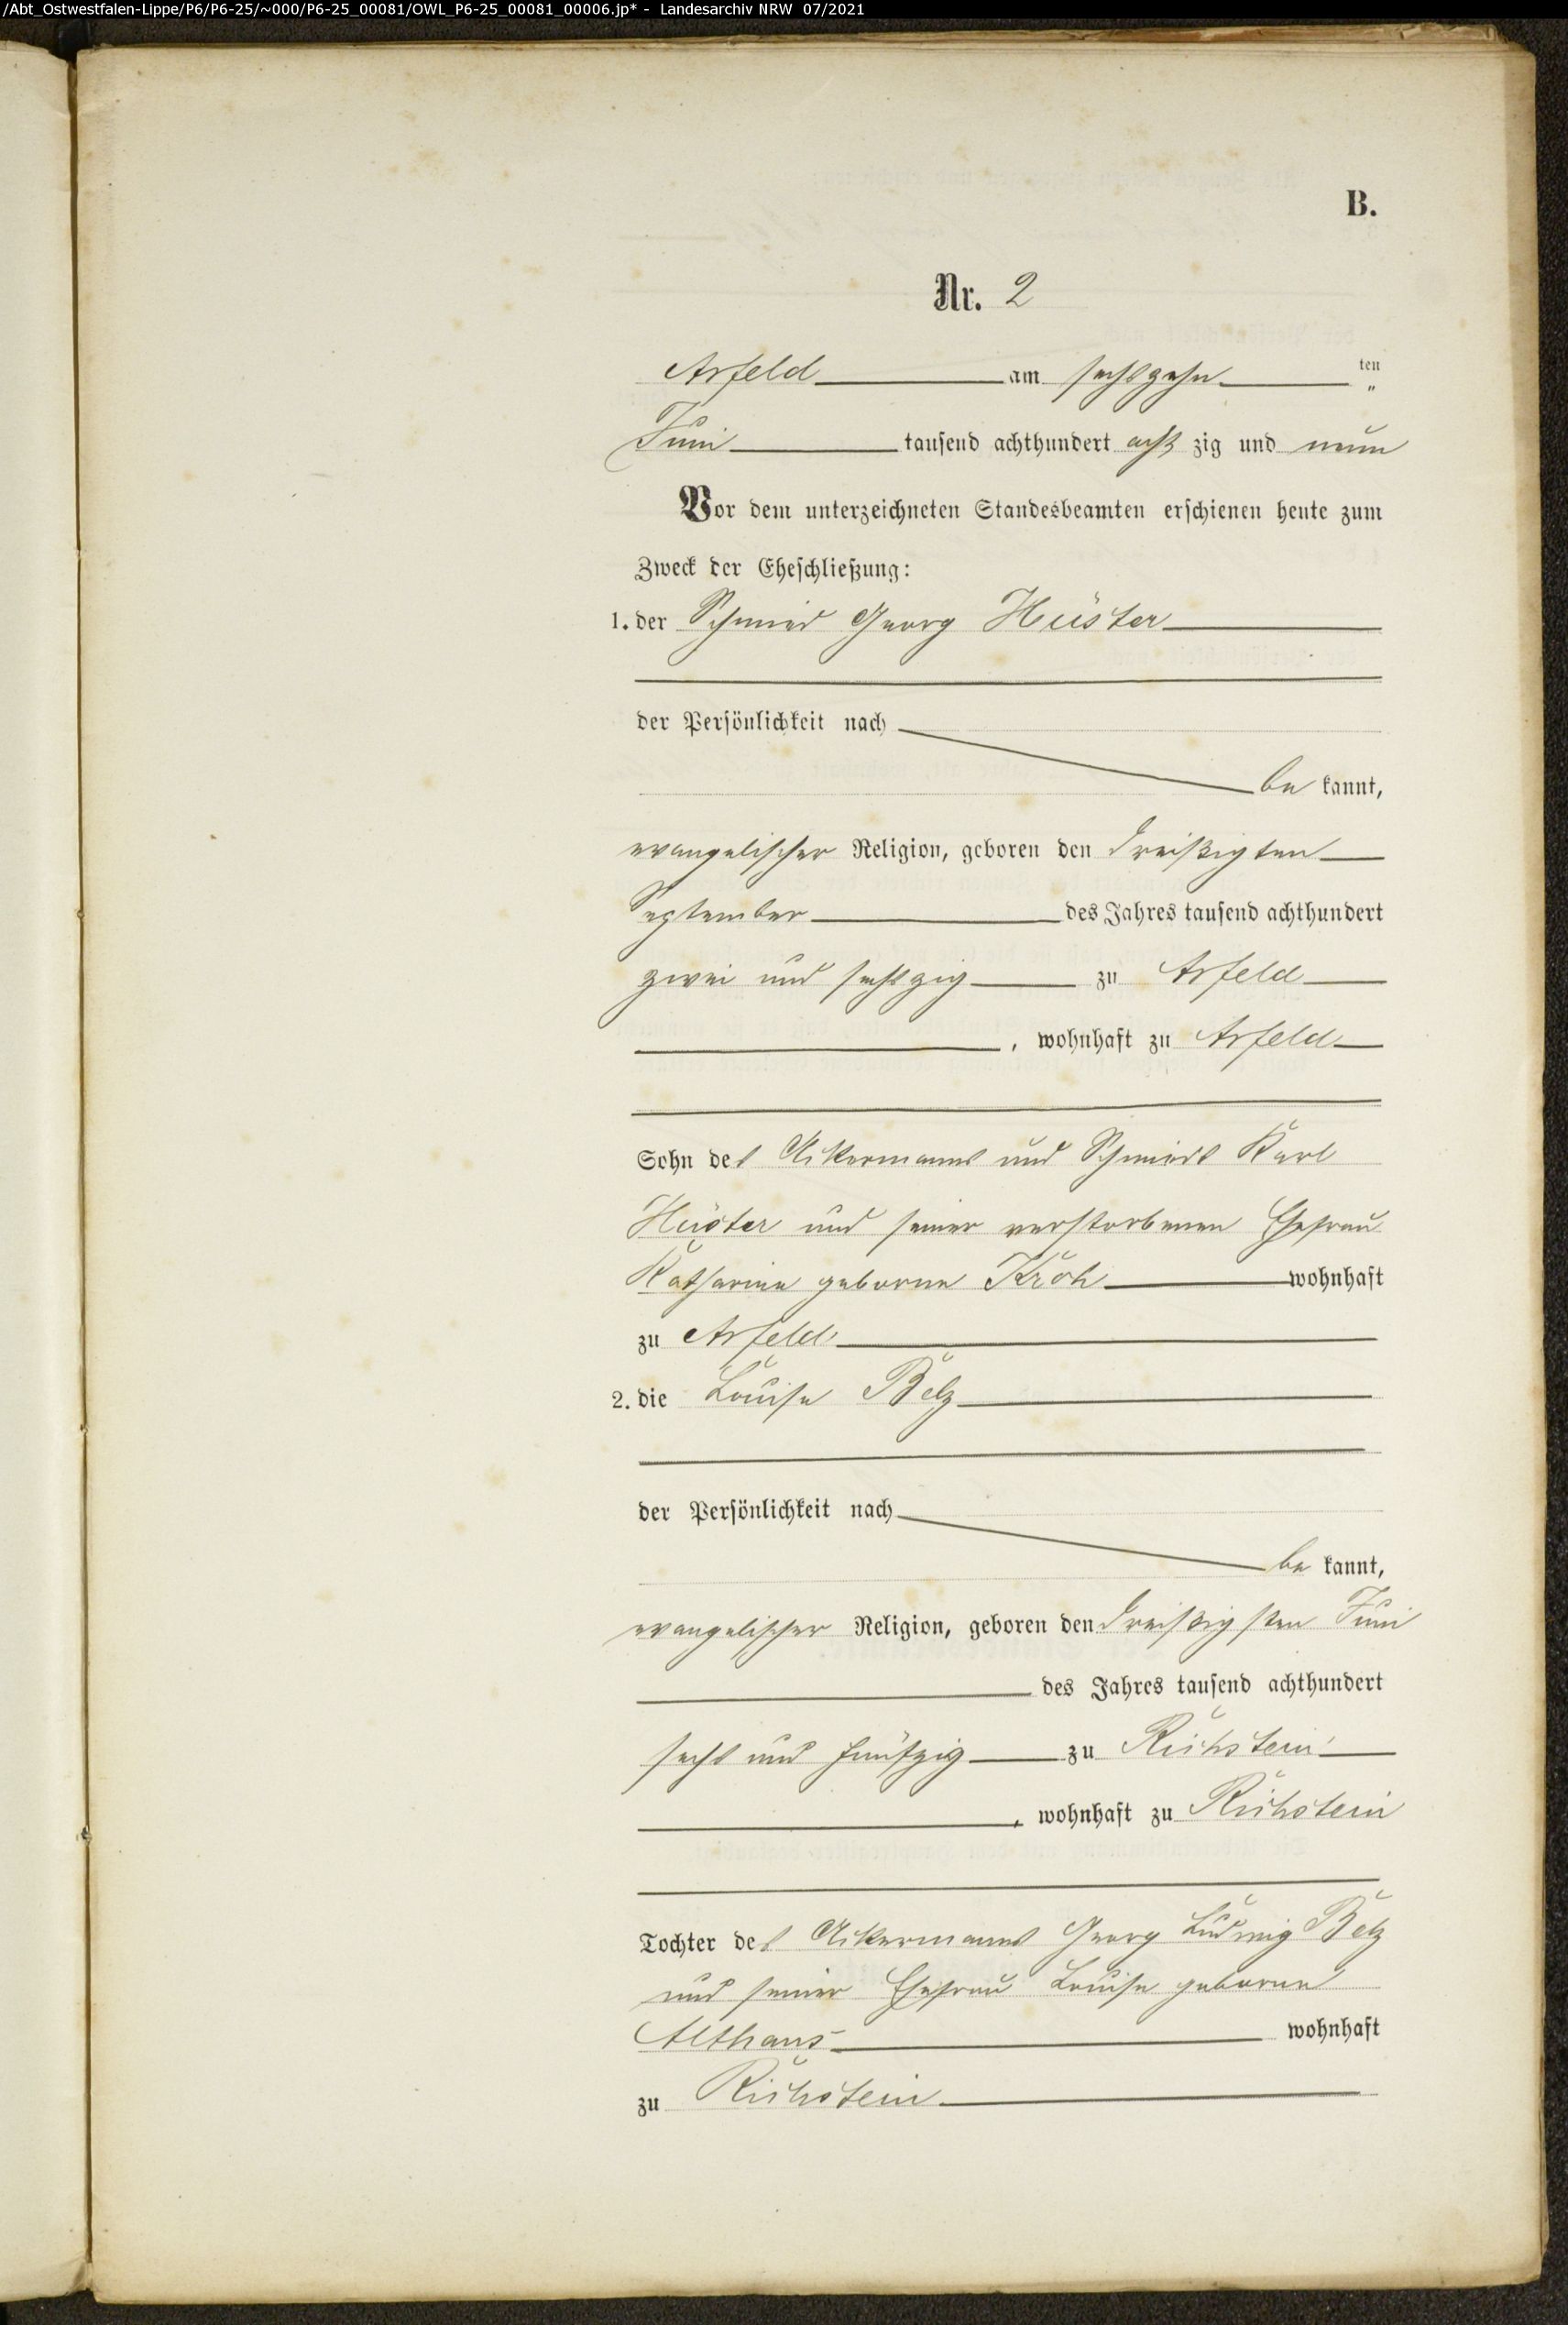 /Abt_Ostwestfalen-Lippe/P6/P6-25/~000/P6-25_00081/OWL_P6-25_00081_00006.jp* - Landesarchiv NRW 07/2021
B.
Nr. 2
Arfeld am sechszehn ten
Juni tausend achthundert acht zig und neun
Vor dem unterzeichneten Standesbeamten erschienen heute zum
Zweck der Eheschließung:
1. der Schmied Georg Hüster
der Persönlichkeit nach
be kannt,
evangelischer Religion, geboren den dreißigten
September des Jahres tausend achthundert
zwei und sechszig zu Arfeld
, wohnhaft zu Arfeld
Sohn des Ackermanns und Schmieds Karl
Hüster und seiner verstorbenen Ehefrau
Katharine geborne Kroh wohnhaft
zu Arfeld
2. die Louise Belz
der Persönlichkeit nach
be kannt,
evangelischer Religion, geboren den dreißigsten Juni
des Jahres tausend achthundert
sechs und fünfzig zu Richstein
, wohnhaft zu Richstein
Tochter des Ackermanns Georg Ludwig Belz
und seiner Ehefrau Louise geborne
Althaus wohnhaft
zu Richstein